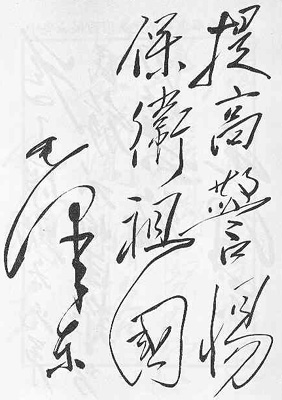 提高警惕
保衛祖國
毛澤东